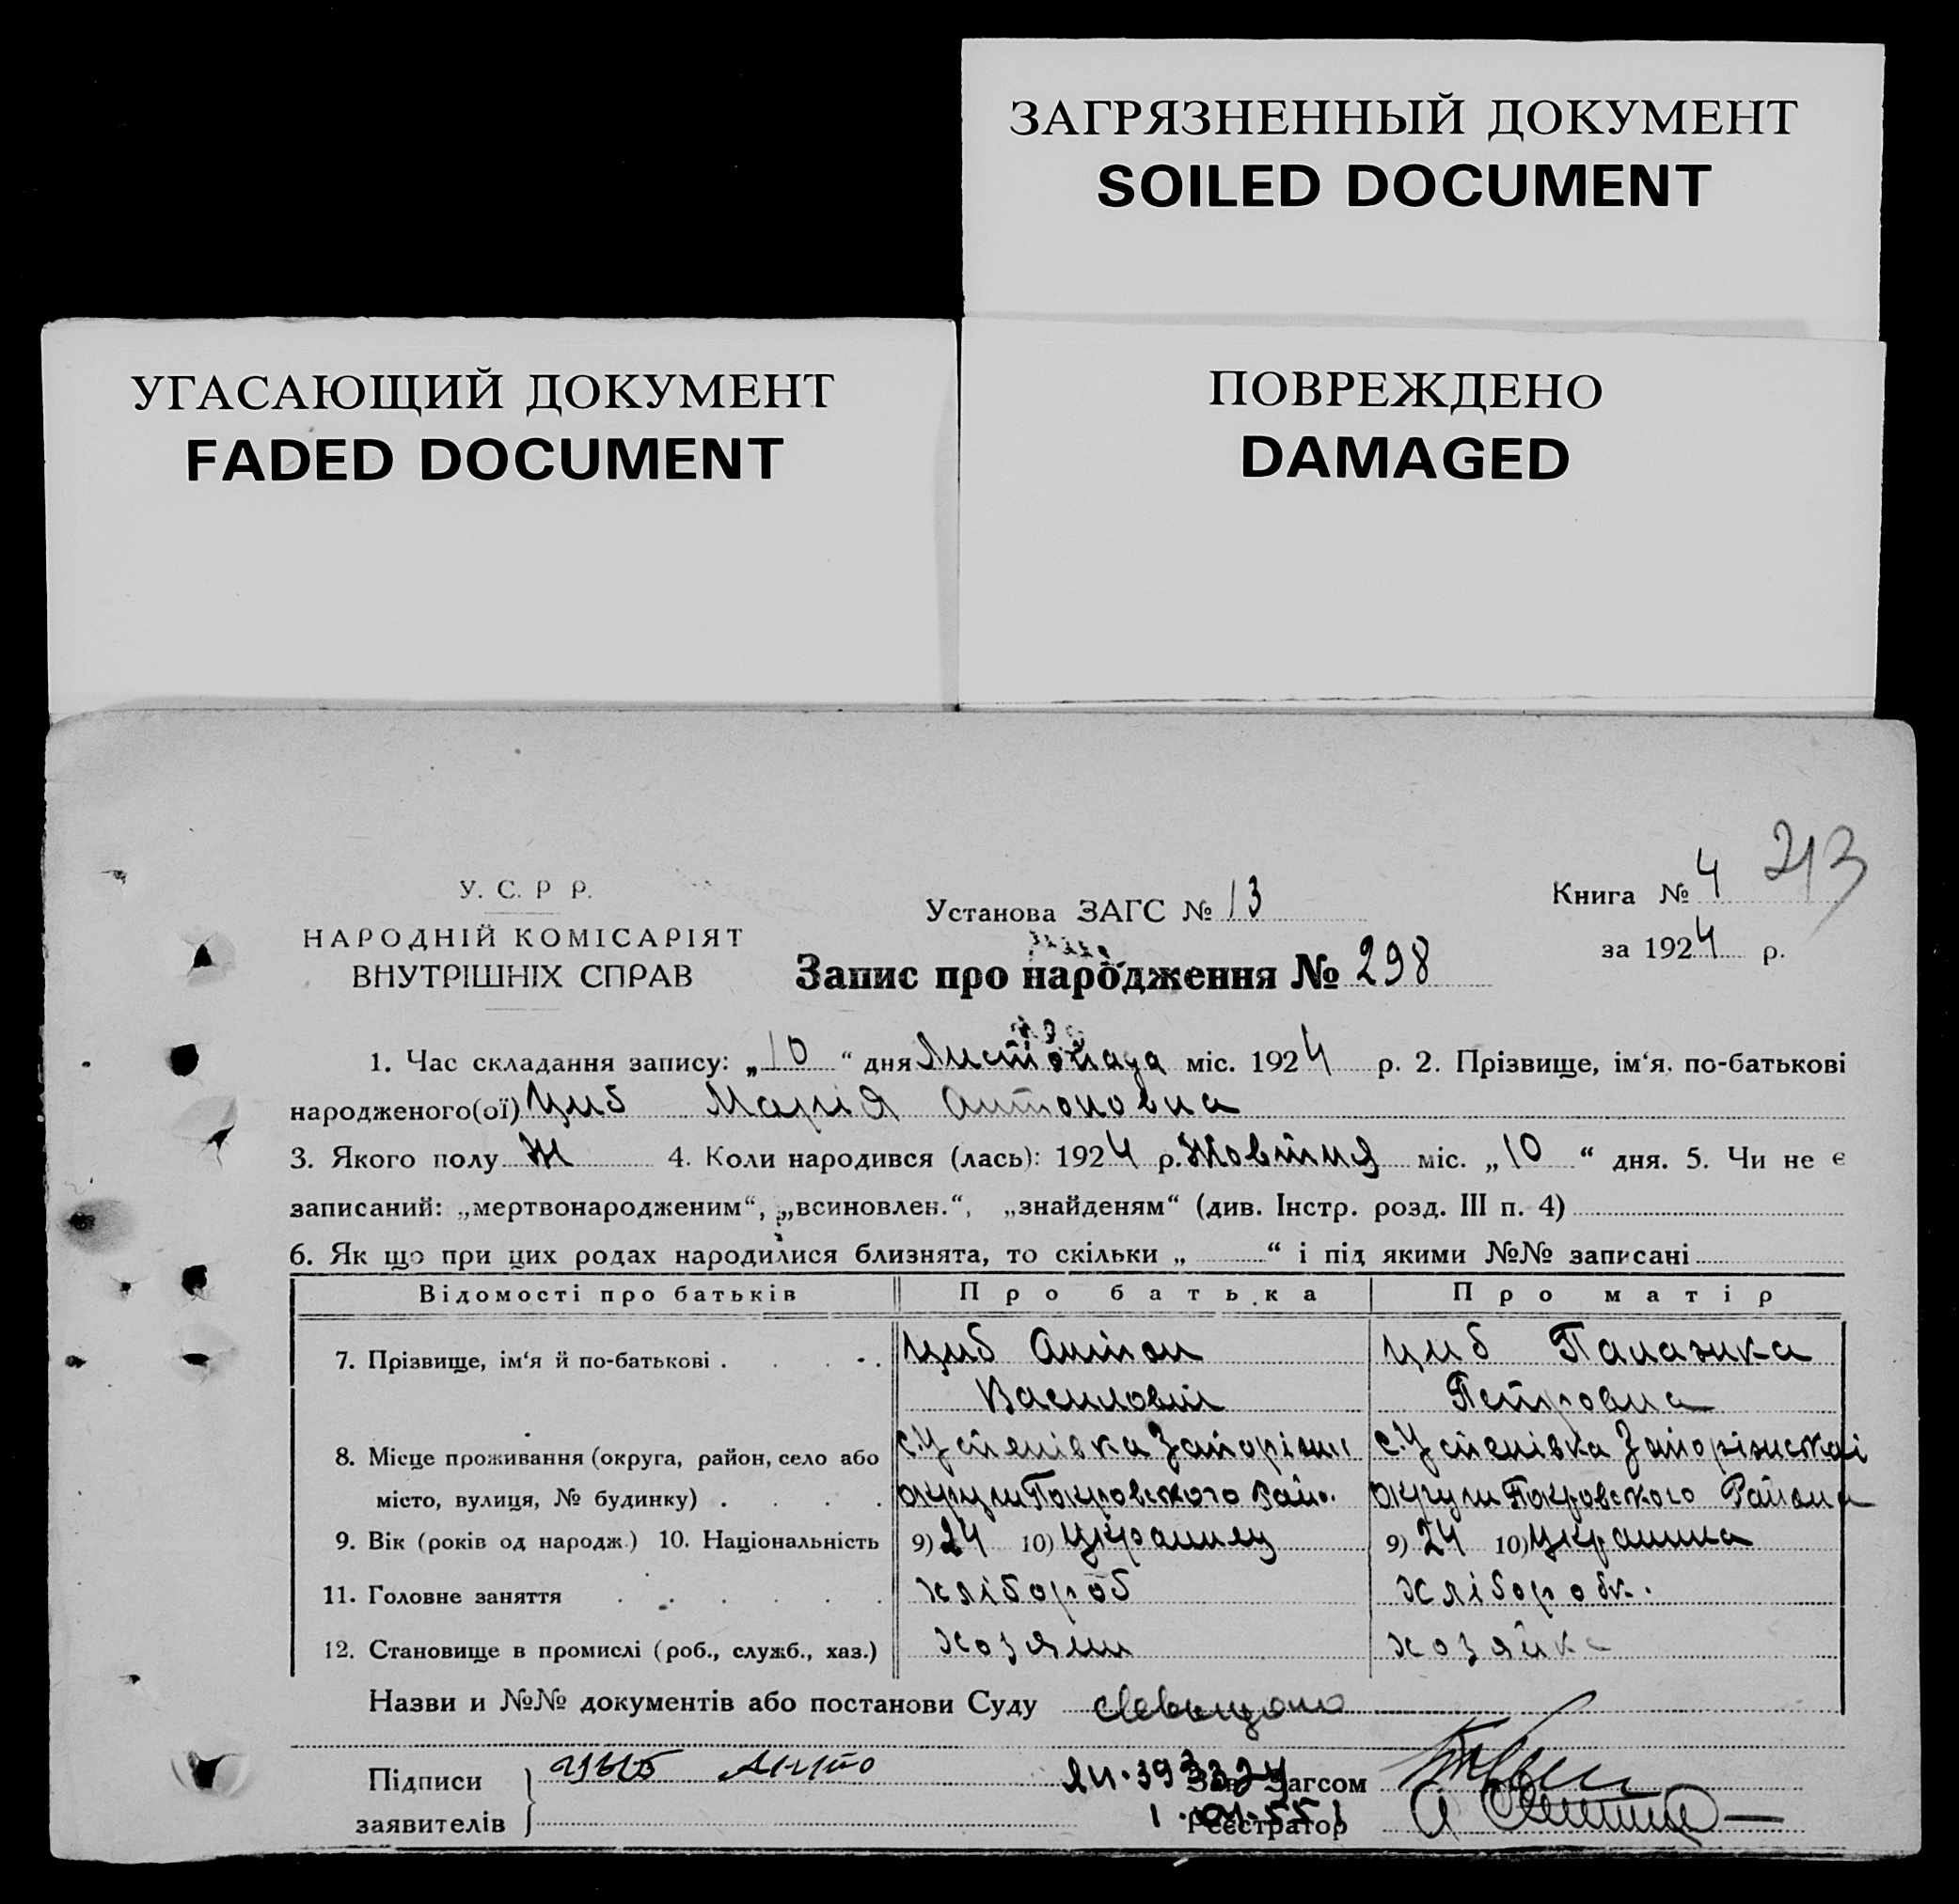 ЗАГРЯЗНЕННЫЙ ДОКУМЕНТ
SOILED DOCUMENT
УГАСАЮЩИЙ ДОКУМЕНТ
FADED DOCUMENT
ПОВРЕЖДЕНО
DAMAGED
213
У. С. Р Р.
НАРОДНІЙ КОМІСАРІЯТ
ВНУТРІШНІХ СПРАВ
Установа ЗАГС № 13
Книга № 4
за 1924 р.
Запис про народження № 298
1. Час складання запису: „10“ дня Листопада міс. 1924 р. 2. Прізвище, ім‘я, по-батькові
народженого(ої) Циб Марія Антоновна
3. Якого полу Ж 4. Коли народився (лась): 1924 р. Жовтня міс. „10“ дня. 5. Чи не є
записаний: „мертвонародженим“, „всиновлен.“, „знайденям“ (див. Інстр. розд. III п. 4)
6. Як що при цих родах народилися близнята, то скільки „ “ і під якими №№ записані
Відомості про батьків Про батька Про матір
7. Прізвище, ім‘я й по-батькові Циб Антон Циб Палажка
Василовіч Петровна
8. Місце проживання (округа, район, село або с. Успенівка Запоріжс с. Успенівка Запоріжскоі
місто, вулиця, № будинку) округи Покровского Райо. округи Покровского Района
9. Вік (років од народж.) 10. Національність 9) 24 10) Українец 9) 24 10) Українка
11. Головне заняття хлібороб хліборобк.
12. Становище в промислі (роб., служб., хаз.) хозяин хозяйка
Назви и №№ документів або постанови Суду
Підписи
заявителів
Цыб Анто
Зав. Загсом
Реєстратор